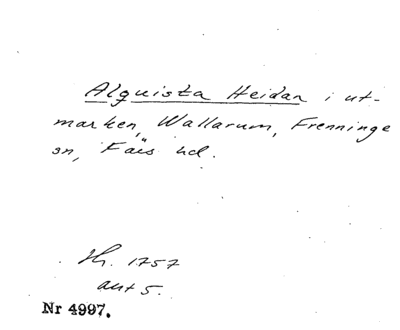 Alquista Heidan i ut-
marken, Wallarum, Frenninge
sn, Färs hd.
1757
akt 5.
Nr 4997.